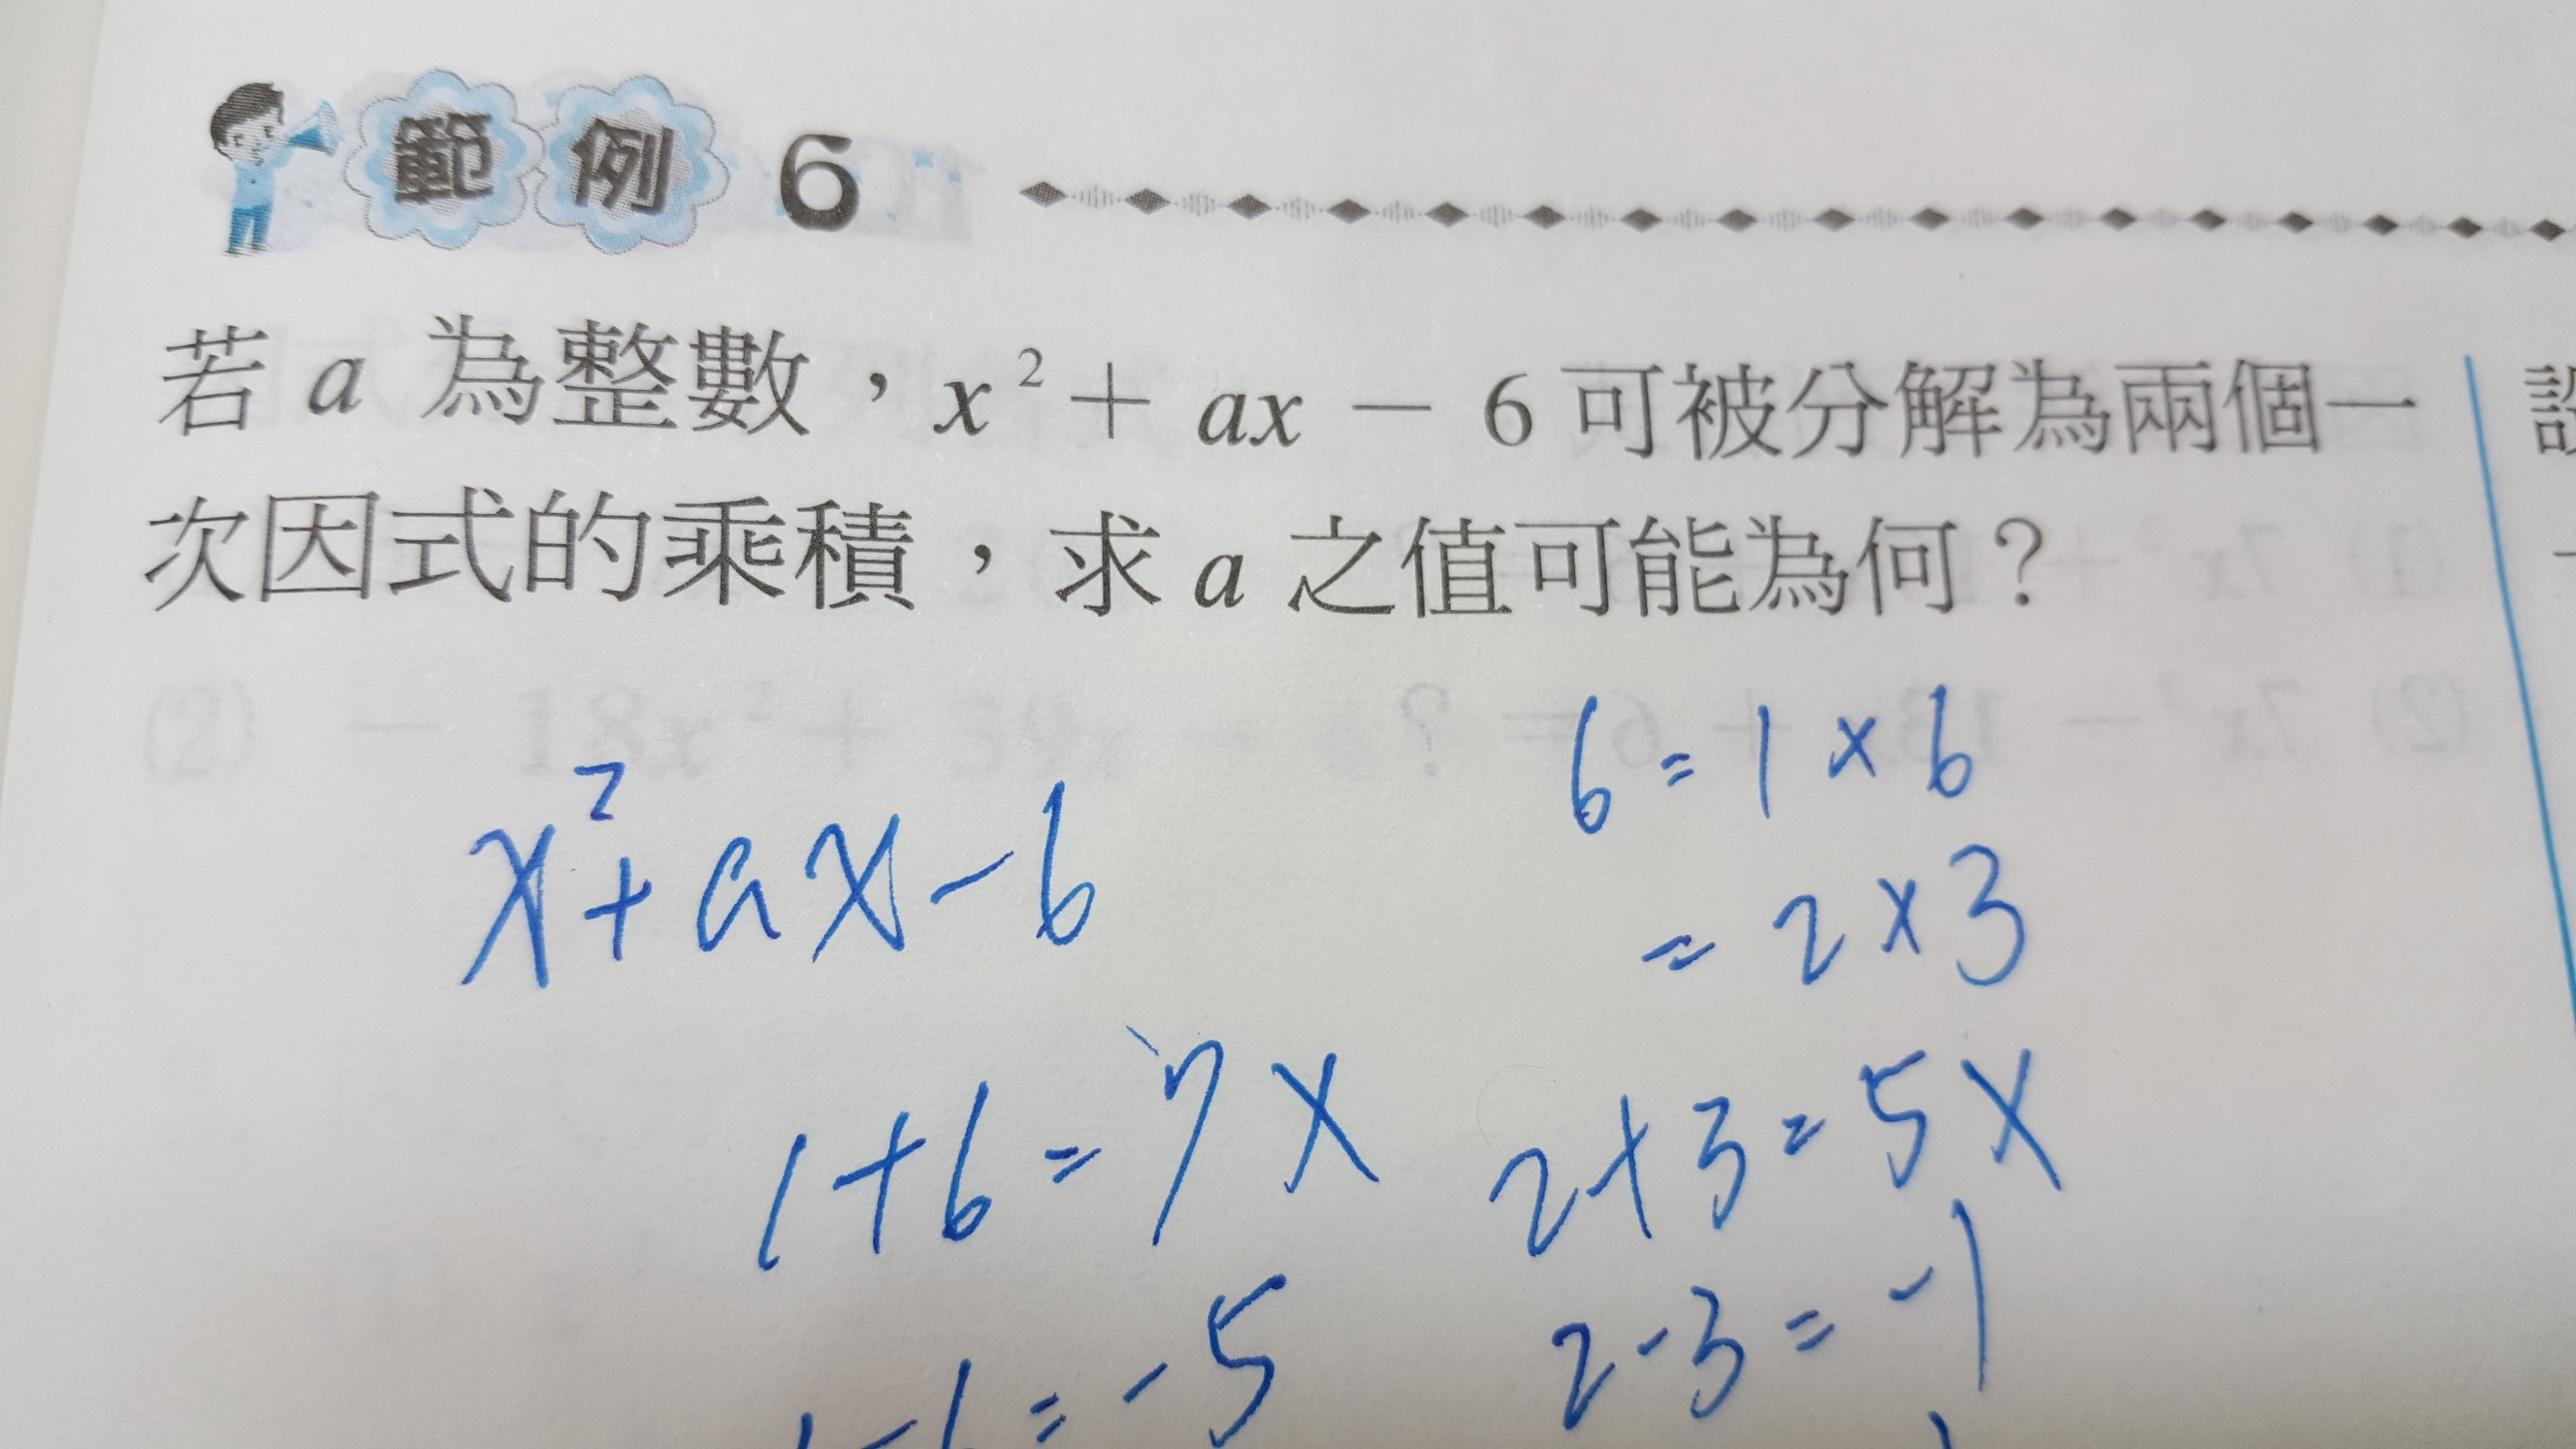 範例 6
若 a 為整數，x² + ax − 6 可被分解為兩個一
次因式的乘積，求 a 之值可能為何？
x² + ax − 6
6 = 1 × 6
= 2 × 3
1 + 6 = 7 ×
2 + 3 = 5 ×
2 - 3 = -1
1 - 6 = -5